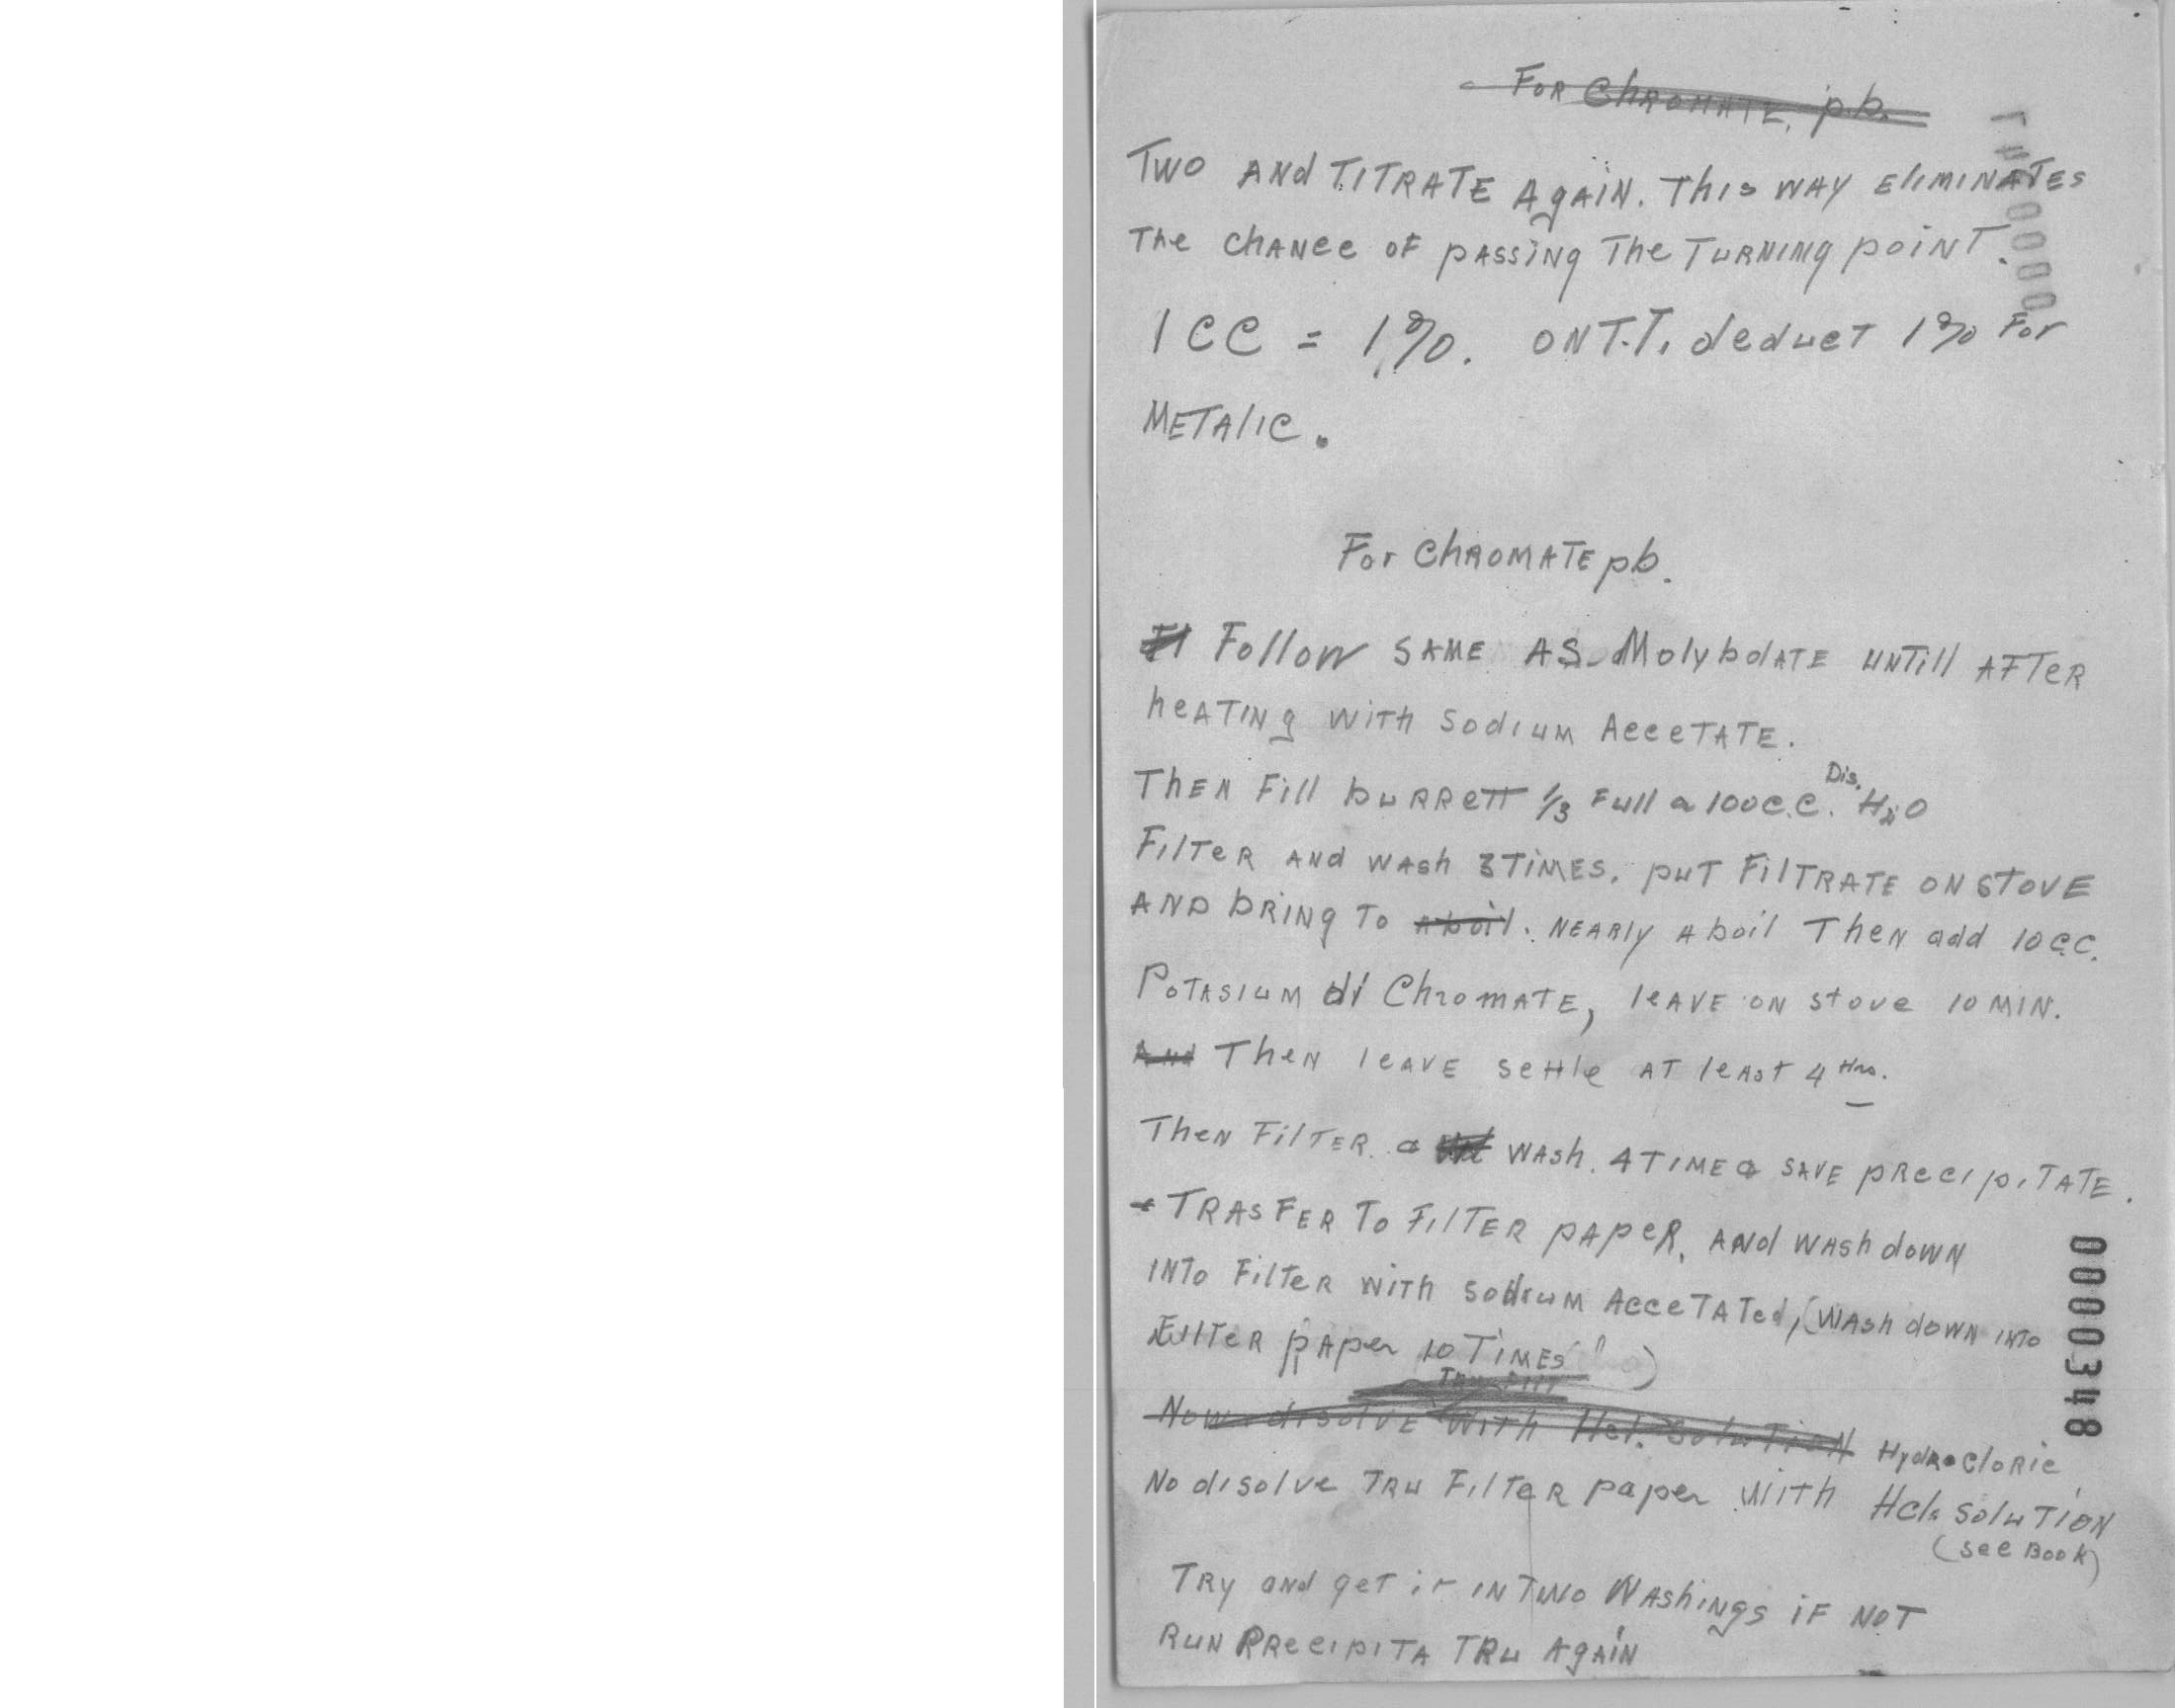 For Chromate. p.b.
Two and Titrate Again. This way eliminates
The chance of passing The Turning point.
1 CC = 1%. on T.T. deduct 1% For
Metalic.
For Chromate pb.
Follow same as Molybdate untill after
heating with sodium Accetate.
Then Fill burrett 1/3 Full a 100 c.c. Dis. H2O
Filter and wash 3 Times. put Filtrate on stove
and bring to a boil. nearly a boil Then add 10 c.c.
Potasium di Chromate, leave on stove 10 min.
And Then leave settle at least 4 Hrs.
Then Filter a wash. 4 Time a save precipitate.
Trasfer to Filter paper, and wash down
into Filter with sodium Accetated, (wash down into
Filter paper 10 Times")
Now disolve with Hcl. solution Hydrocloric
No disolve Tru Filter paper with Hcl. solution
(see Book)
Try and get it in Two Washings if not
Run Precipita Tru Again
0000348